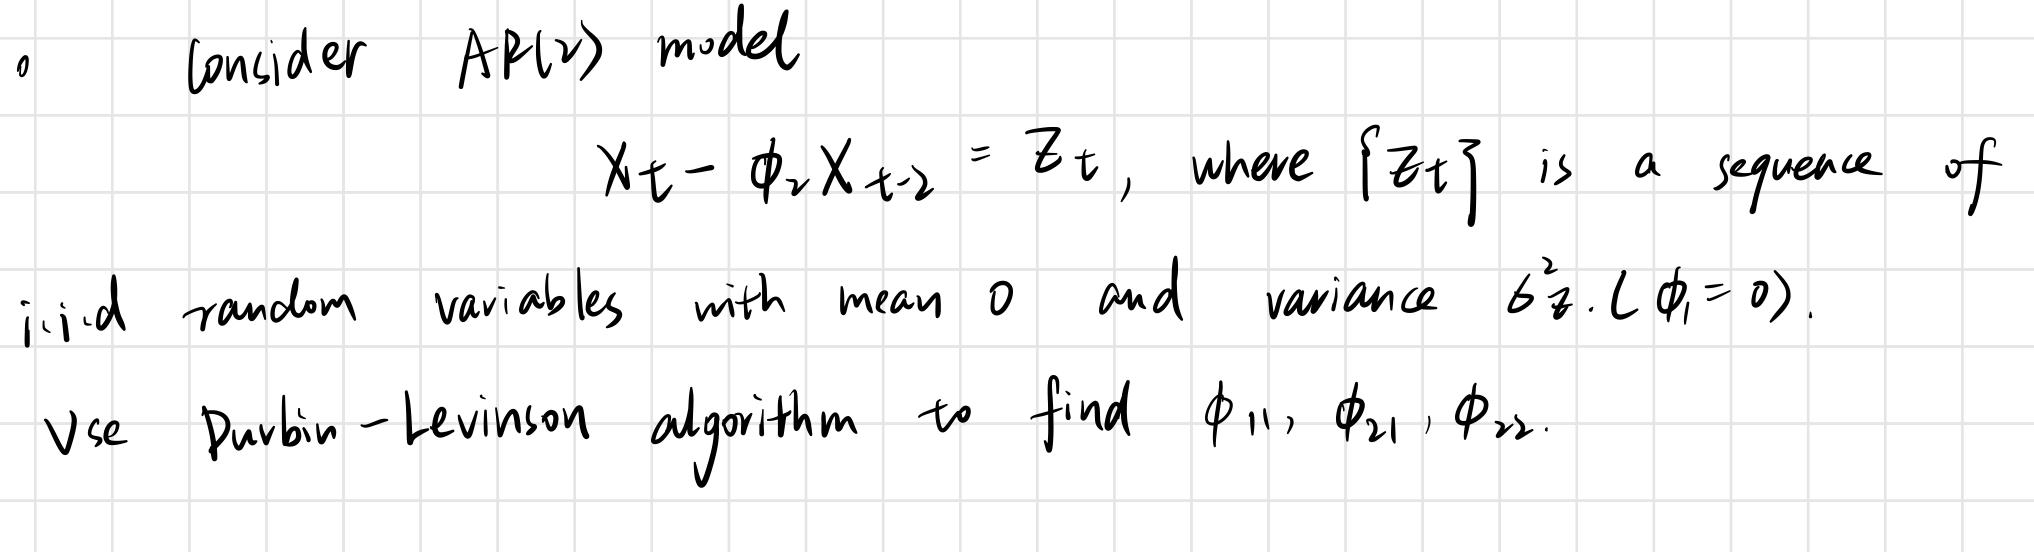 Consider AR(2) model
X_t - ϕ_2 X_{t-2} = Z_t, where {Z_t} is a sequence of
i.i.d random variables with mean 0 and variance σ²_Z. (ϕ_1 = 0).
Use Durbin-Levinson algorithm to find ϕ_11, ϕ_21, ϕ_22.